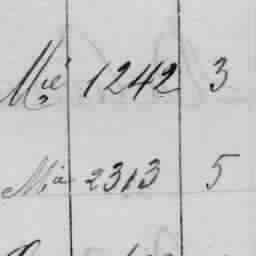 Mié 1242 3
Mia 2313 5